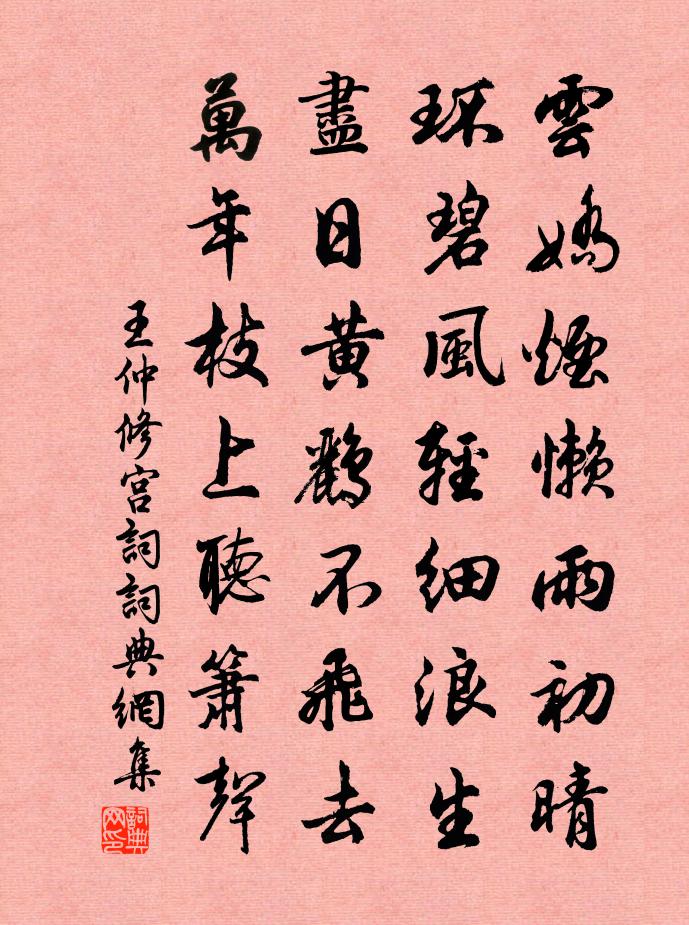 雲嬌煙懶雨初晴
環碧風輕細浪生
盡日黃鸝不飛去
萬年枝上聽簫聲
王仲修宮詞詞典網集
詞典网印